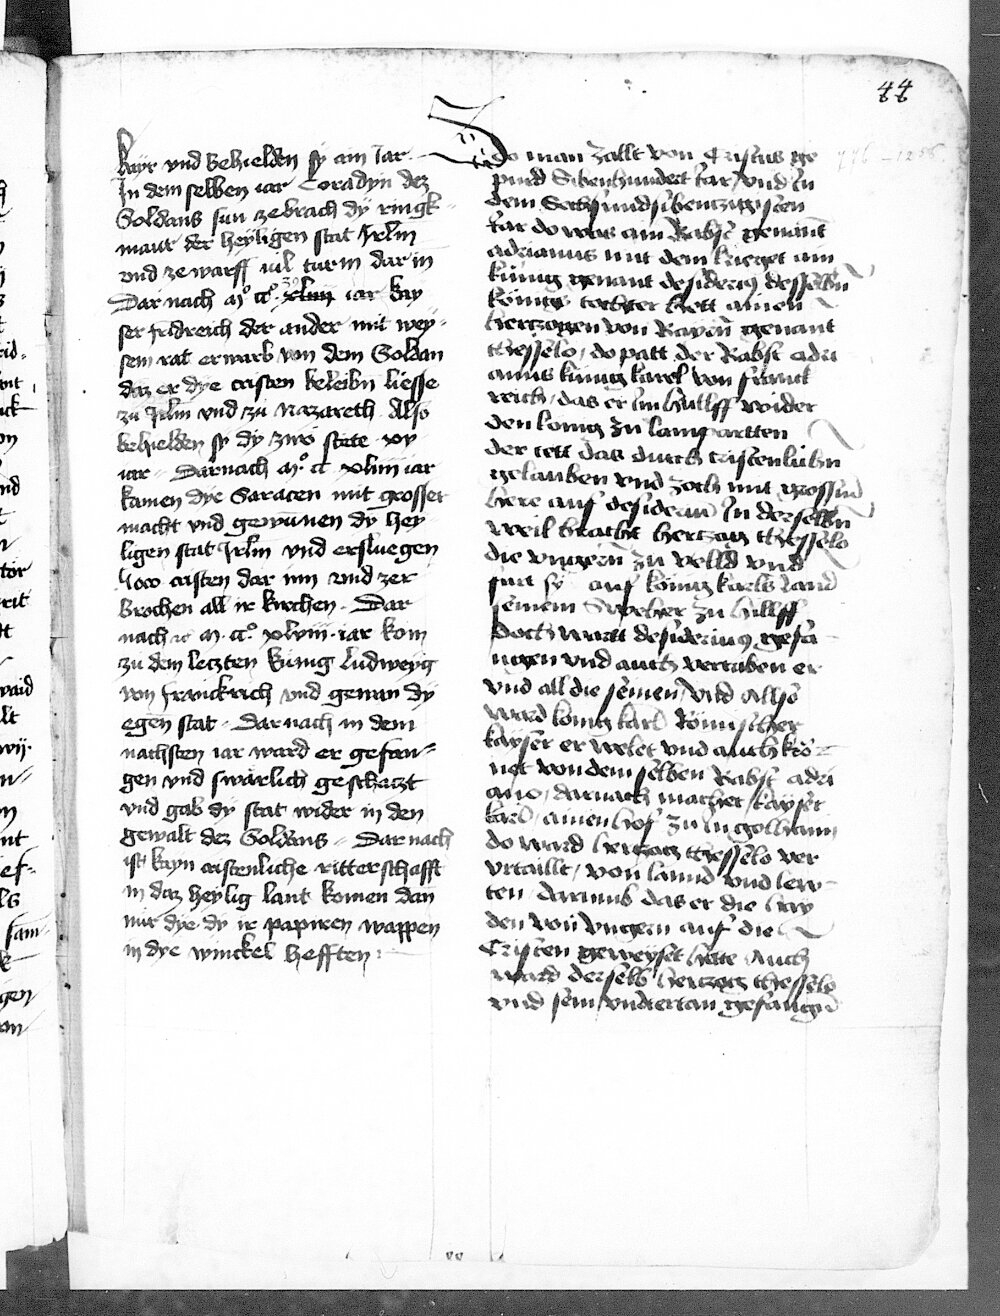 44
kayr vnd behielden sy ain Jar
Jn dem selben iar Coradyn dez
Soldans sun zebrach dÿ ringk
maur der heyligen stat Jrlm
vnd ze warff uil turm dar in
Dar nach mº ccº xxº xliiij iar kay
ser fridreich der ander mit wey
sem rat erwarb von dem Soldan
daz er dye cristen beleibn liesse
zu Jrlm vnd zu Nazareth Also
behielden sy dÿ zwo stete xv
iar Darnach mº cc xliiij iar
kamen dye Saracen mit grosser
macht vnd gewunnen dy hey
ligen stat Jrlm vnd ersluegen
cristen dar inn vnd zer
brochen all ir kirchen Dar
nach mº ccº xlviij iar kom
zu dem leczten kunig ludweyg
von franckrich vnd gewan dÿ
egen stat Dar nach in dem
nachsten iar ward er gefan
gen vnd swarlich geschaczt
vnd gab dÿ stat wider in den
gewalt dez Soldans Dar nach
ist kayn cristenliche ritterschafft
in daz heylig lant komen dan
nur dye dy ir papiren wappen
in dye winckel hefften
So man zallt von Cristus ge
purd Sibenhundert Iar vnd In
dem Sechsundsibentzigisten
Iar do was ain Babst genant
adrianus mit dem krieget ain
kunig genant desiderius desselbn
konigs tochter hett ainen
hertzogen von Bayrn genant
thesselo do patt der Babst adri
anus kunig karel von franck
reich das er im hullff wider
den konig zu lampartten
der tett das durch cristenlichn
gelauben vnd zoch mit grossem
here auf desiderium In derselbn
weil bracht hertzog thesselo
die vngern zu velld vnd
furt sy auf konig karls land
seinem Sweher zu hillff
Doch wartt desiderius gefa
ngen vnd auch vertriben er
vnd all die seinen vnd allso
ward konig karl Romischer
kayser erwelet vnd auch kro
net von dem selben Babst adri
ano darnach machet kayser
karl ainen hof zu Ingolhaim
do ward hertzog thesselo ver
vrtaillt von lannd vnd lew
ten darumb das er die hay
den von vngern auf die
Cristen geweyset hette Auch
ward derselb hertzog thesselo
vnd sein vndertan gefangn